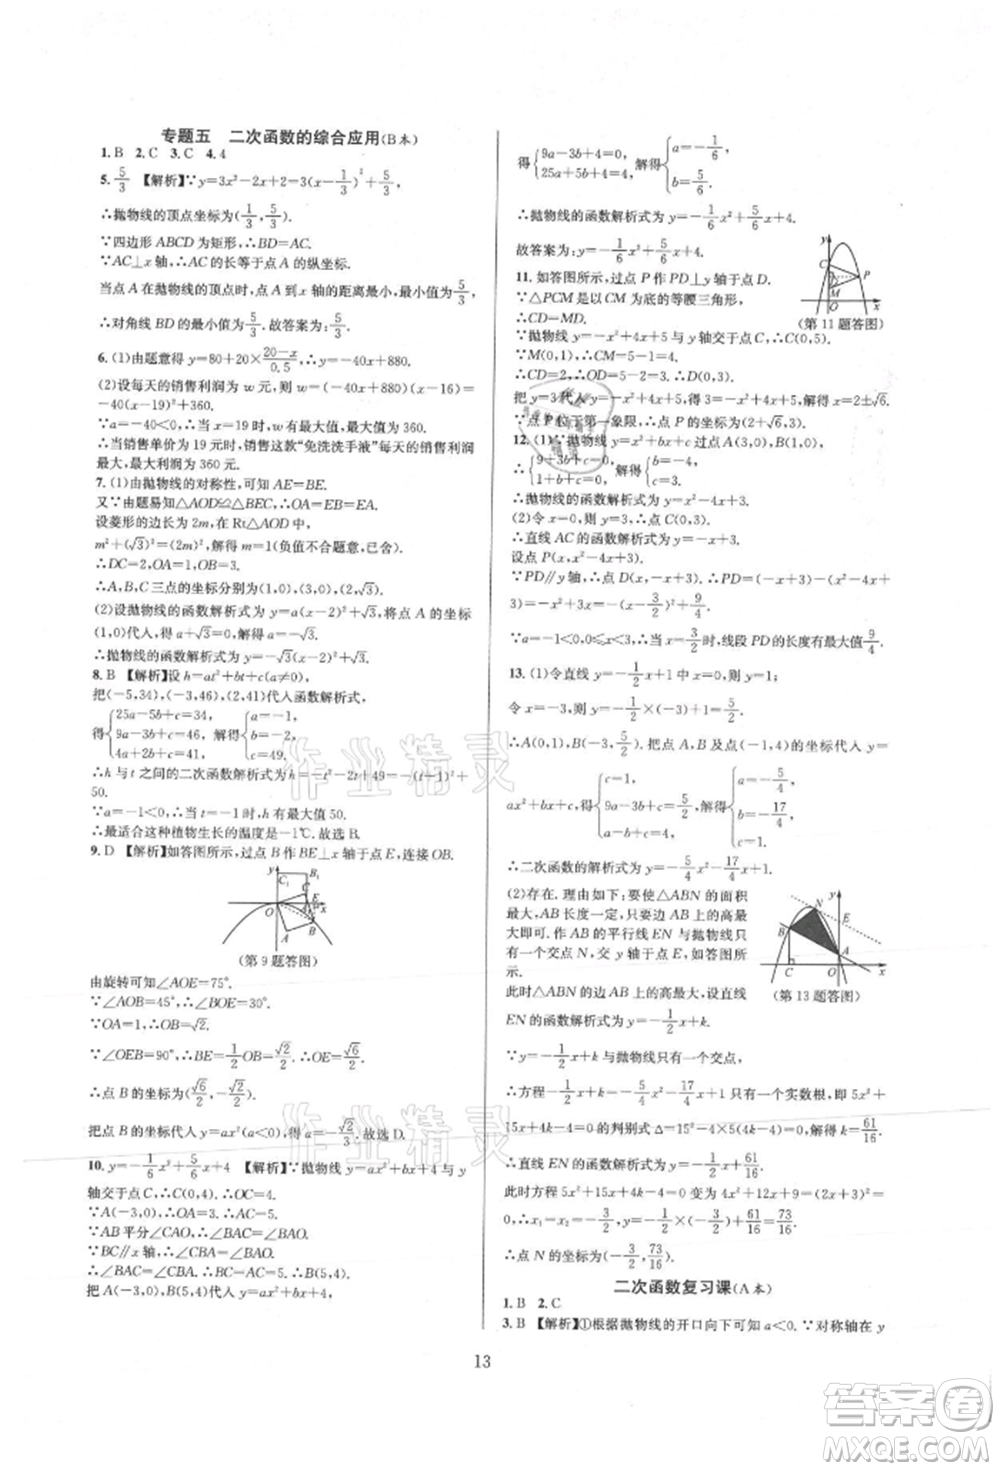 专题五　二次函数的综合应用(B本)
1. B　2. C　3. C　4. 4
5. 5/3　【解析】∵y=3x²-2x+2=3(x-1/3)²+5/3,
∴抛物线的顶点坐标为(1/3,5/3).
∵四边形 ABCD 为矩形,∴BD=AC.
∵AC⊥x 轴,∴AC 的长等于点 A 的纵坐标.
当点 A 在抛物线的顶点时,点 A 到 x 轴的距离最小,最小值为5/3,
∴对角线 BD 的最小值为5/3.故答案为:5/3.
6. (1)由题意得 y=80+20×(20-x)/0.5,∴y=-40x+880.
(2)设每天的销售利润为 w 元,则有 w=(-40x+880)(x-16)=
-40(x-19)²+360.
∵a=-40<0,∴当 x=19 时,w 有最大值,最大值为 360.
∴当销售单价为 19 元时,销售这款“免洗洗手液”每天的销售利润
最大,最大利润为 360 元.
7. (1)由抛物线的对称性,可知 AE=BE.
又∵由题易知△AOD≌△BEC,∴OA=EB=EA.
设菱形的边长为 2m,在 Rt△AOD 中,
m²+(√3)²=(2m)²,解得 m=1(负值不合题意,已舍去).
∴DC=2,OA=1,OB=3.
∴A,B,C 三点的坐标分别为(1,0),(3,0),(2,√3).
(2)设抛物线的函数解析式为 y=a(x-2)²+√3,将点 A 的坐标
(1,0)代入,得 a+√3=0,解得 a=-√3.
∴抛物线的函数解析式为 y=-√3(x-2)²+√3.
8. B　【解析】设 h=at²+bt+c(a≠0),
把(-5,34),(-3,46),(2,41)代入函数解析式,
得{25a-5b+c=34, 9a-3b+c=46, 4a+2b+c=41, 解得{a=-1, b=-2, c=49.
∴h 与 t 之间的二次函数解析式为 h=-t²-2t+49=-(t+1)²+
50.
∵a=-1<0,∴当 t=-1 时,h 有最大值 50.
∴最适合这种植物生长的温度是-1℃.故选 B.
9. D　【解析】如答图所示,过点 B 作 BE⊥x 轴于点 E,连接 OB.
y
C₁ B₁
C E
O x
A B
(第 9 题答图)
由旋转可知∠AOE=75°.
∵∠AOB=45°,∴∠BOE=30°.
∵OA=1,∴OB=√2.
∵∠OEB=90°,∴BE=1/2OB=√2/2.∴OE=√6/2.
∴点 B 的坐标为(√6/2,-√2/2).
把点 B 的坐标代入 y=ax²(a<0),得 a=-√2/3.故选 D.
10. y=-1/6x²+5/6x+4　【解析】∵抛物线 y=ax²+bx+4 与 y
轴交于点 C,∴C(0,4).∴OC=4.
∵A(-3,0),∴OA=3,∴AC=5.
∵AB 平分∠CAO,∴∠CAB=∠BAO.
∵BC∥x 轴,∴∠CBA=∠BAO.
∴∠BAC=∠CBA.∴AC=BC=5,∴B(5,4).
把 A(-3,0),B(5,4)代入 y=ax²+bx+4,
得{9a-3b+4=0, 25a+5b+4=4, 解得{a=-1/6, b=5/6.
∴抛物线的函数解析式为 y=-1/6x²+5/6x+4.
故答案为:y=-1/6x²+5/6x+4.
11. 如答图所示,过点 P 作 PD⊥y 轴于点 D.
∵△PCM 是以 CM 为底的等腰三角形,
∴CD=MD.
∵抛物线 y=-x²+4x+5 与 y 轴交于点 C,∴C(0,5).
∵M(0,1),∴CM=5-1=4.
∴CD=2,∴OD=5-2=3.∴D(0,3).
把 y=3 代入 y=-x²+4x+5,得 3=-x²+4x+5,解得 x=2±√6.
∵点 P 位于第一象限,∴点 P 的坐标为(2+√6,3).
y
C
D P
M
O x
(第 11 题答图)
12. (1)∵抛物线 y=x²+bx+c 过点 A(3,0),B(1,0),
∴{9+3b+c=0, 1+b+c=0, 解得{b=-4, c=3.
∴抛物线的函数解析式为 y=x²-4x+3.
(2)令 x=0,则 y=3,∴点 C(0,3).
∴直线 AC 的函数解析式为 y=-x+3.
设点 P(x,x²-4x+3).
∵PD∥y 轴,∴点 D(x,-x+3).
∴PD=(-x+3)-(x²-4x+3)=-x²+3x=-(x-3/2)²+9/4.
∵a=-1<0,0≤x<3,∴当 x=3/2时,线段 PD 的长度有最大值9/4.
13. (1)令直线 y=-1/2x+1 中 x=0,则 y=1;
令 x=-3,则 y=-1/2×(-3)+1=5/2.
∴A(0,1),B(-3,5/2).把点 A、点 B、点 C 的坐标代入 y=
ax²+bx+c,得{c=1, 9a-3b+c=5/2, a-b+c=4, 解得{a=-5/4, b=-17/4, c=1.
∴二次函数的解析式为 y=-5/4x²-17/4x+1.
(2)存在.理由如下:要使△ABN 的面积
最大,AB 长度一定,只要边 AB 上的高最
大即可.作 AB 的平行线 EN 与抛物线只
有一个交点 N,交 y 轴于点 E,如答图所
示.
此时△ABN 边 AB 上的高最大,设直线
EN 的函数解析式为 y=-1/2x+k.
y
N E
B
A
C O x
(第 13 题答图)
∵y=-1/2x+k 与抛物线只有一个交点,
∴方程-1/2x+k=-5/4x²-17/4x+1 只有一个实数根,即 5x²+
15x+4k-4=0 的判别式 Δ=15²-4×5(4k-4)=0,∴k=61/16.
∴直线 EN 的函数解析式为 y=-1/2x+61/16.
此时方程 5x²+15x+4k-4=0 变为 4x²+12x+9=(2x+3)²=
0,∴x₁=x₂=-3/2,y=-1/2×(-3/2)+61/16=73/16.
∴点 N 的坐标为(-3/2,73/16).
二次函数复习课(A本)
1. B　2. C
3. B　【解析】①根据抛物线的开口向下可知 a<0.∵对称轴在 y
13
作业精灵
作业精灵
答案圈
MXQE.COM